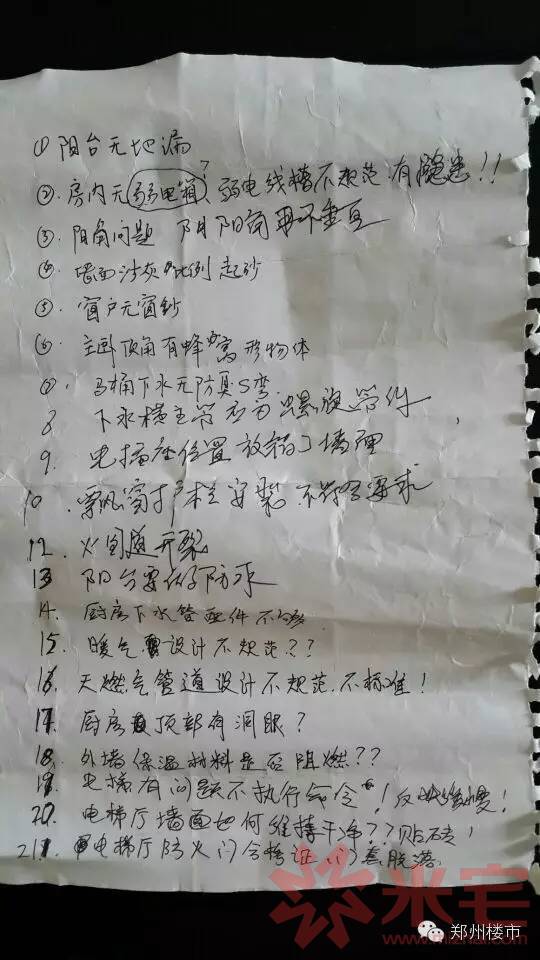 ① 阳台无地漏
② 房内无弱电箱、弱电线槽不规范 有隐患!!
③ 阳角问题 阴阳角不垂直
④ 墙面沙灰比例 起砂
⑤ 窗户无窗纱
⑥ 主卧顶角有蜂窝形物体
⑦ 马桶下水无防臭S弯
8 下水横主管应为螺旋管件
9. 电插座位置放错了 墙理
10. 飘窗护栏安装不符合要求
12. 火开裂
13 阳台要做防水
14. 厨房下水管配件不够
15. 暖气设计不规范??
16. 天燃气管道设计不规范.不标准!
17. 厨房顶部有洞眼?
18. 外墙保温材料是否阻燃??
19. 电梯有问题不执行命令!反映缓慢!
20. 电梯厅墙面如何维持干净??贴砖!
21. 电梯厅防火门合格证、门脱落.
米宅
www.mizhai.com
郑州楼市